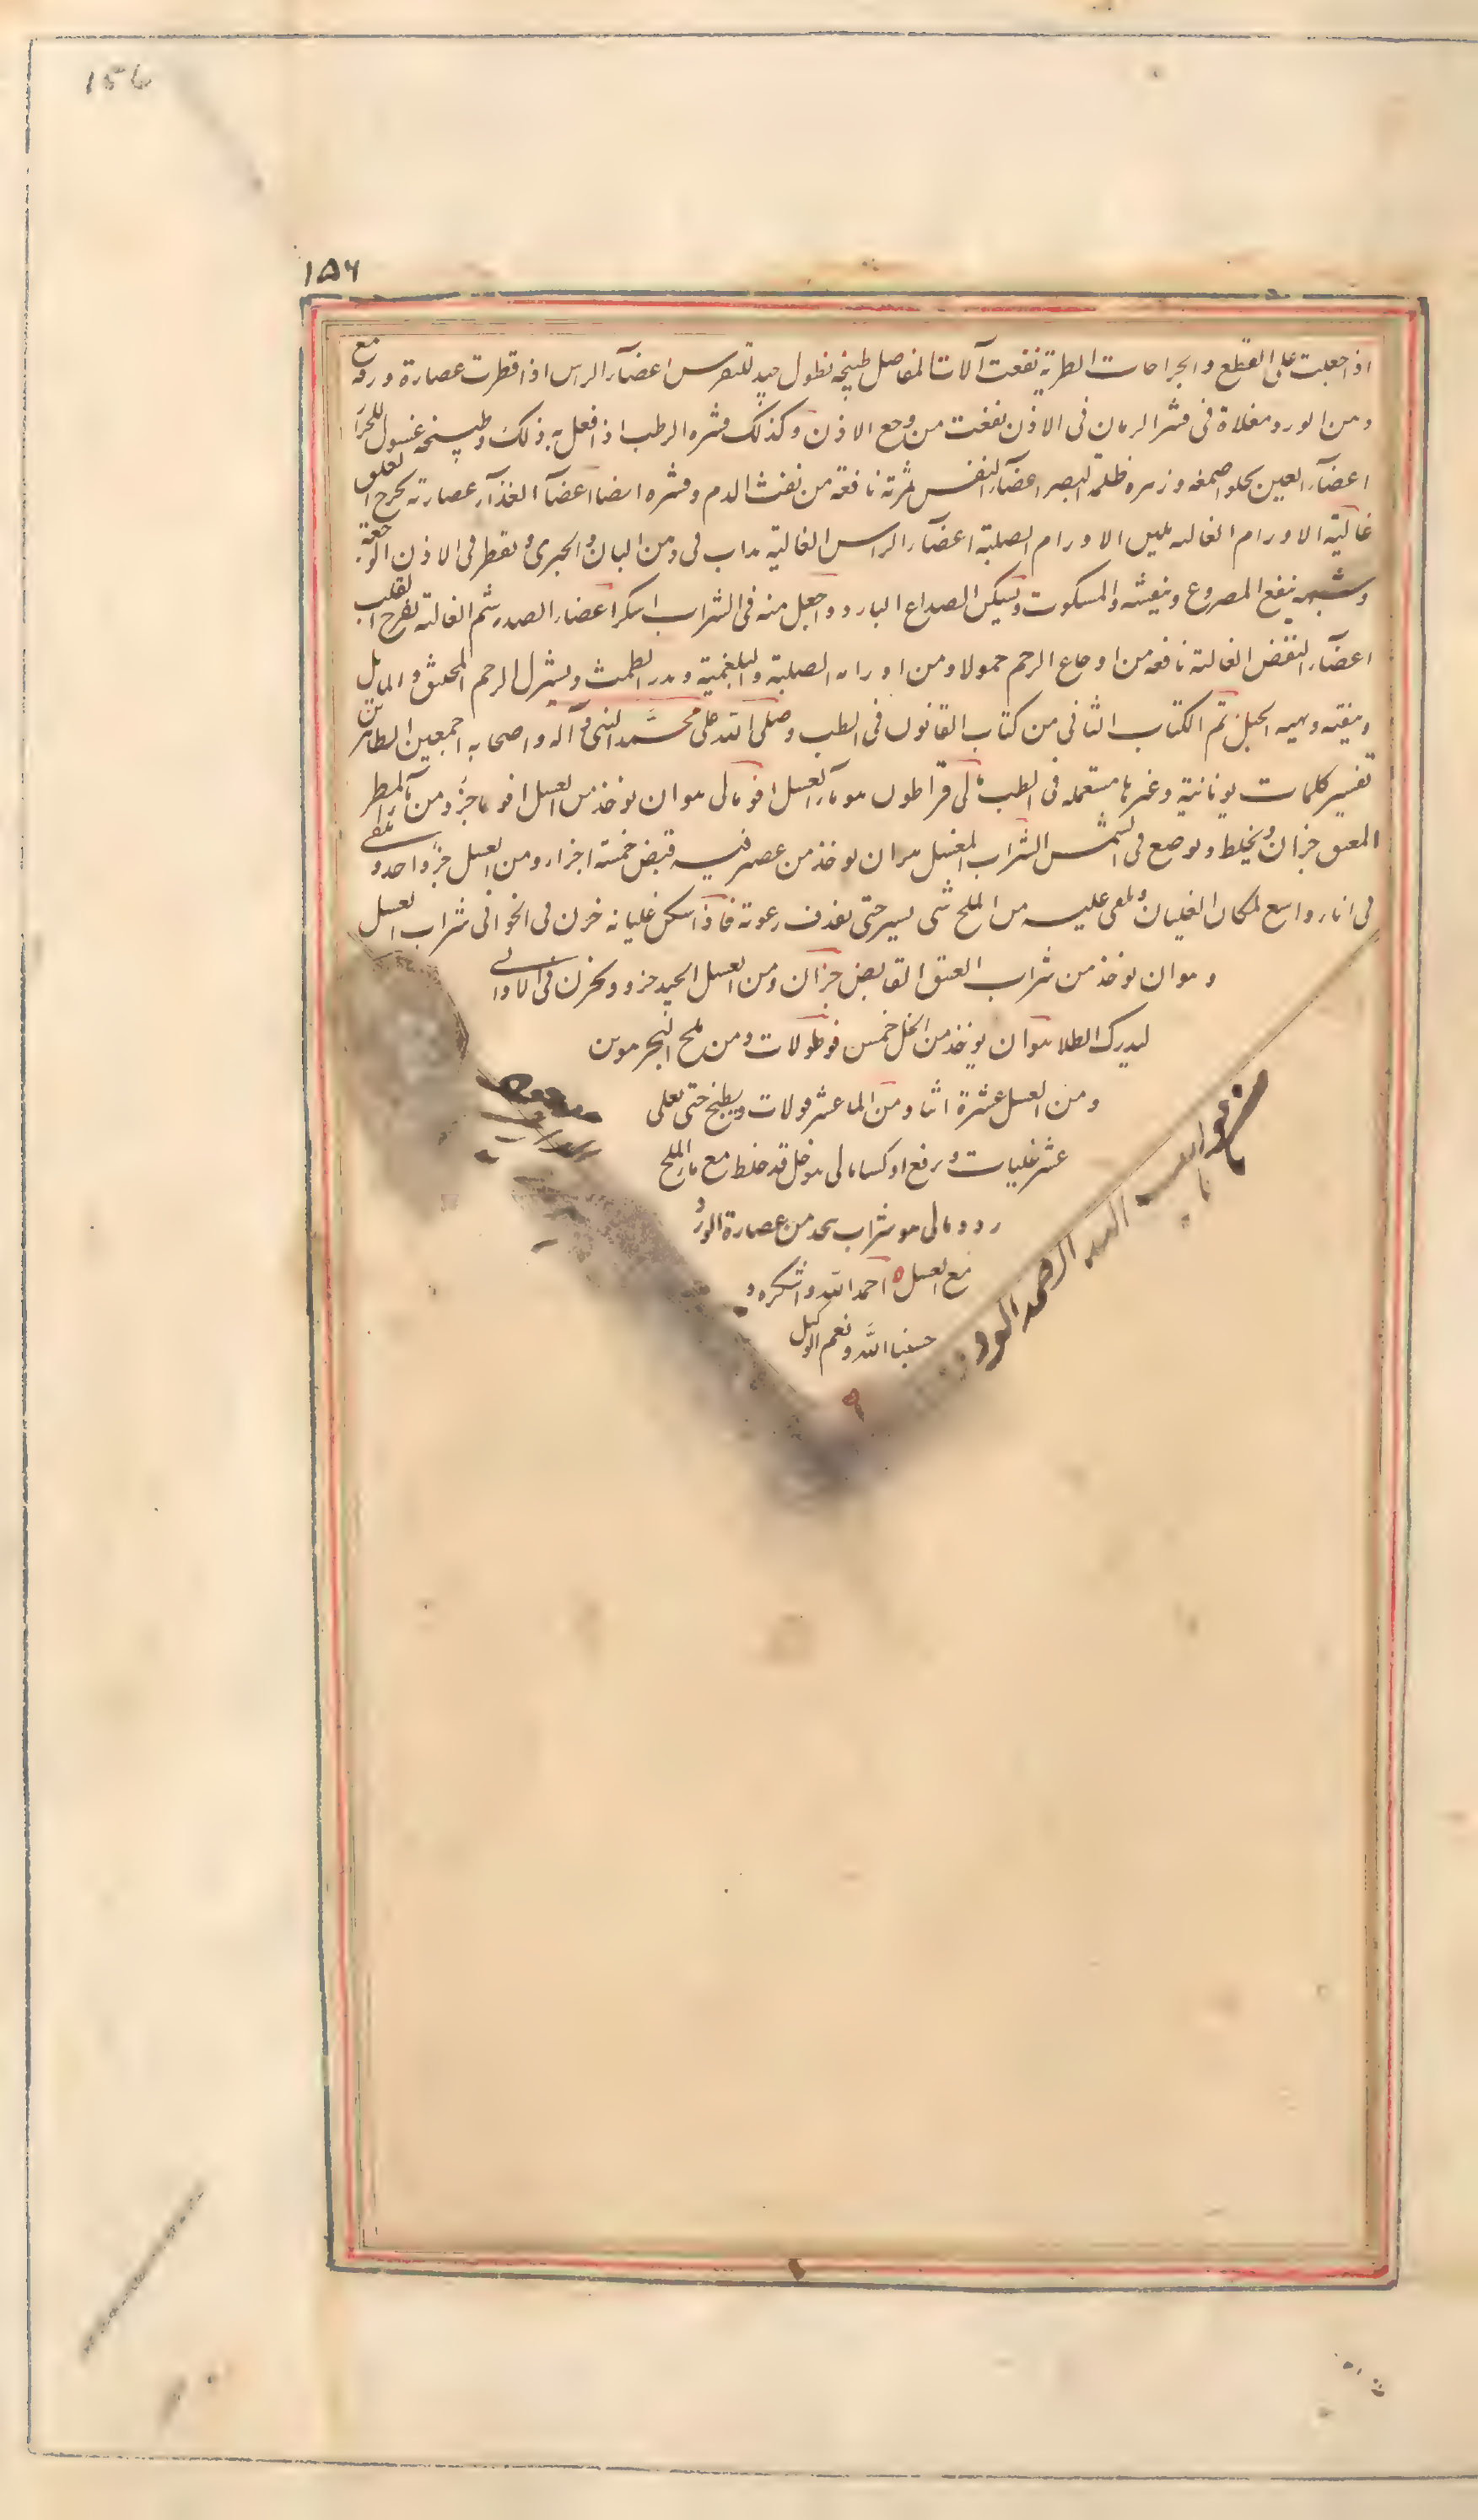 156
١٥٦
اذا جعلت على القطع والجراحات الطرية نفعت آلات المفاصل طبيخه نطول جيد للنقرس اعضآء الراس اذا قطرت عصارة ورقه مع
دهن الورد مغلاة فى قشر الرمان فى الاذن نفعت من وجع الاذن وكذلك قشره الرطب اذا فعل به ذلك وطبيخه غسول
اعضآء العين يجلو صمغه وزهره ظلمة البصر اعضآء النفس ثمرته نافعة من نفث الدم وقشره ايضا اعضآء الغذآء عصارته تخرج العلق
غالية الاورام الغاليه تلين الاورام الصلبة اعضآء الراس الغالية تداب فى دهن البان والخيرى وتقطر فى الاذن الوجعة
وشمه ينفع المصروع وينعشه والمسكوت وتسكن الصداع البارد واجعل منه فى الشراب اسكر اعضاء الصدر شم الغالية تفرح القلب
اعضآء النفض الغالية نافعه من اوجاع الرحم حمولا ومن اورامه الصلبة والبلغمية وتدر الطمث وتنزل الرحم المختنق والمايل
وينقيه ويهيه للحبل تم الكتاب الثانى من كتاب القانون فى الطب وصلى الله على محمد النبى وآله واصحابه اجمعين الطاهرين
تفسير كلمات يونانية وغيرها مستعمله فى الطب مالى قراطون هو مآء العسل افومالى هو ان يوخذ من العسل جزؤ ومن مآء المطر
المعتق جزان ويخلط ويوضع فى الشمس الشراب المعسل هو ان يوخذ من عصير فيه قبض خمسة اجزاء ومن العسل جزؤ واحد ويلقى
فى اناء واسع لمكان الغليان ويلقى عليه من الملح شى يسير حتى يقذف رغوته فاذا سكن غليانه خزن فى الخوابى شراب العسل
وهو ان يوخذ من شراب العتيق القابض جزان ومن العسل الجيد جزو ويخزن فى الاوانى
ليدرك الطلا هو ان يوخذ من الخل خمس قوطولات ومن ملح البحر
ومن العسل عشرة امنا ومن الما عشر قولات ويطبخ حتى يغلى
عشر غليات ويرفع اوكسامالى هو خل قد خلط مع مآء الملح
رودومالى هو شراب يتخذ من عصارة الورد
مع العسل احمد الله واشكره و
حسبنا الله ونعم الوكيل